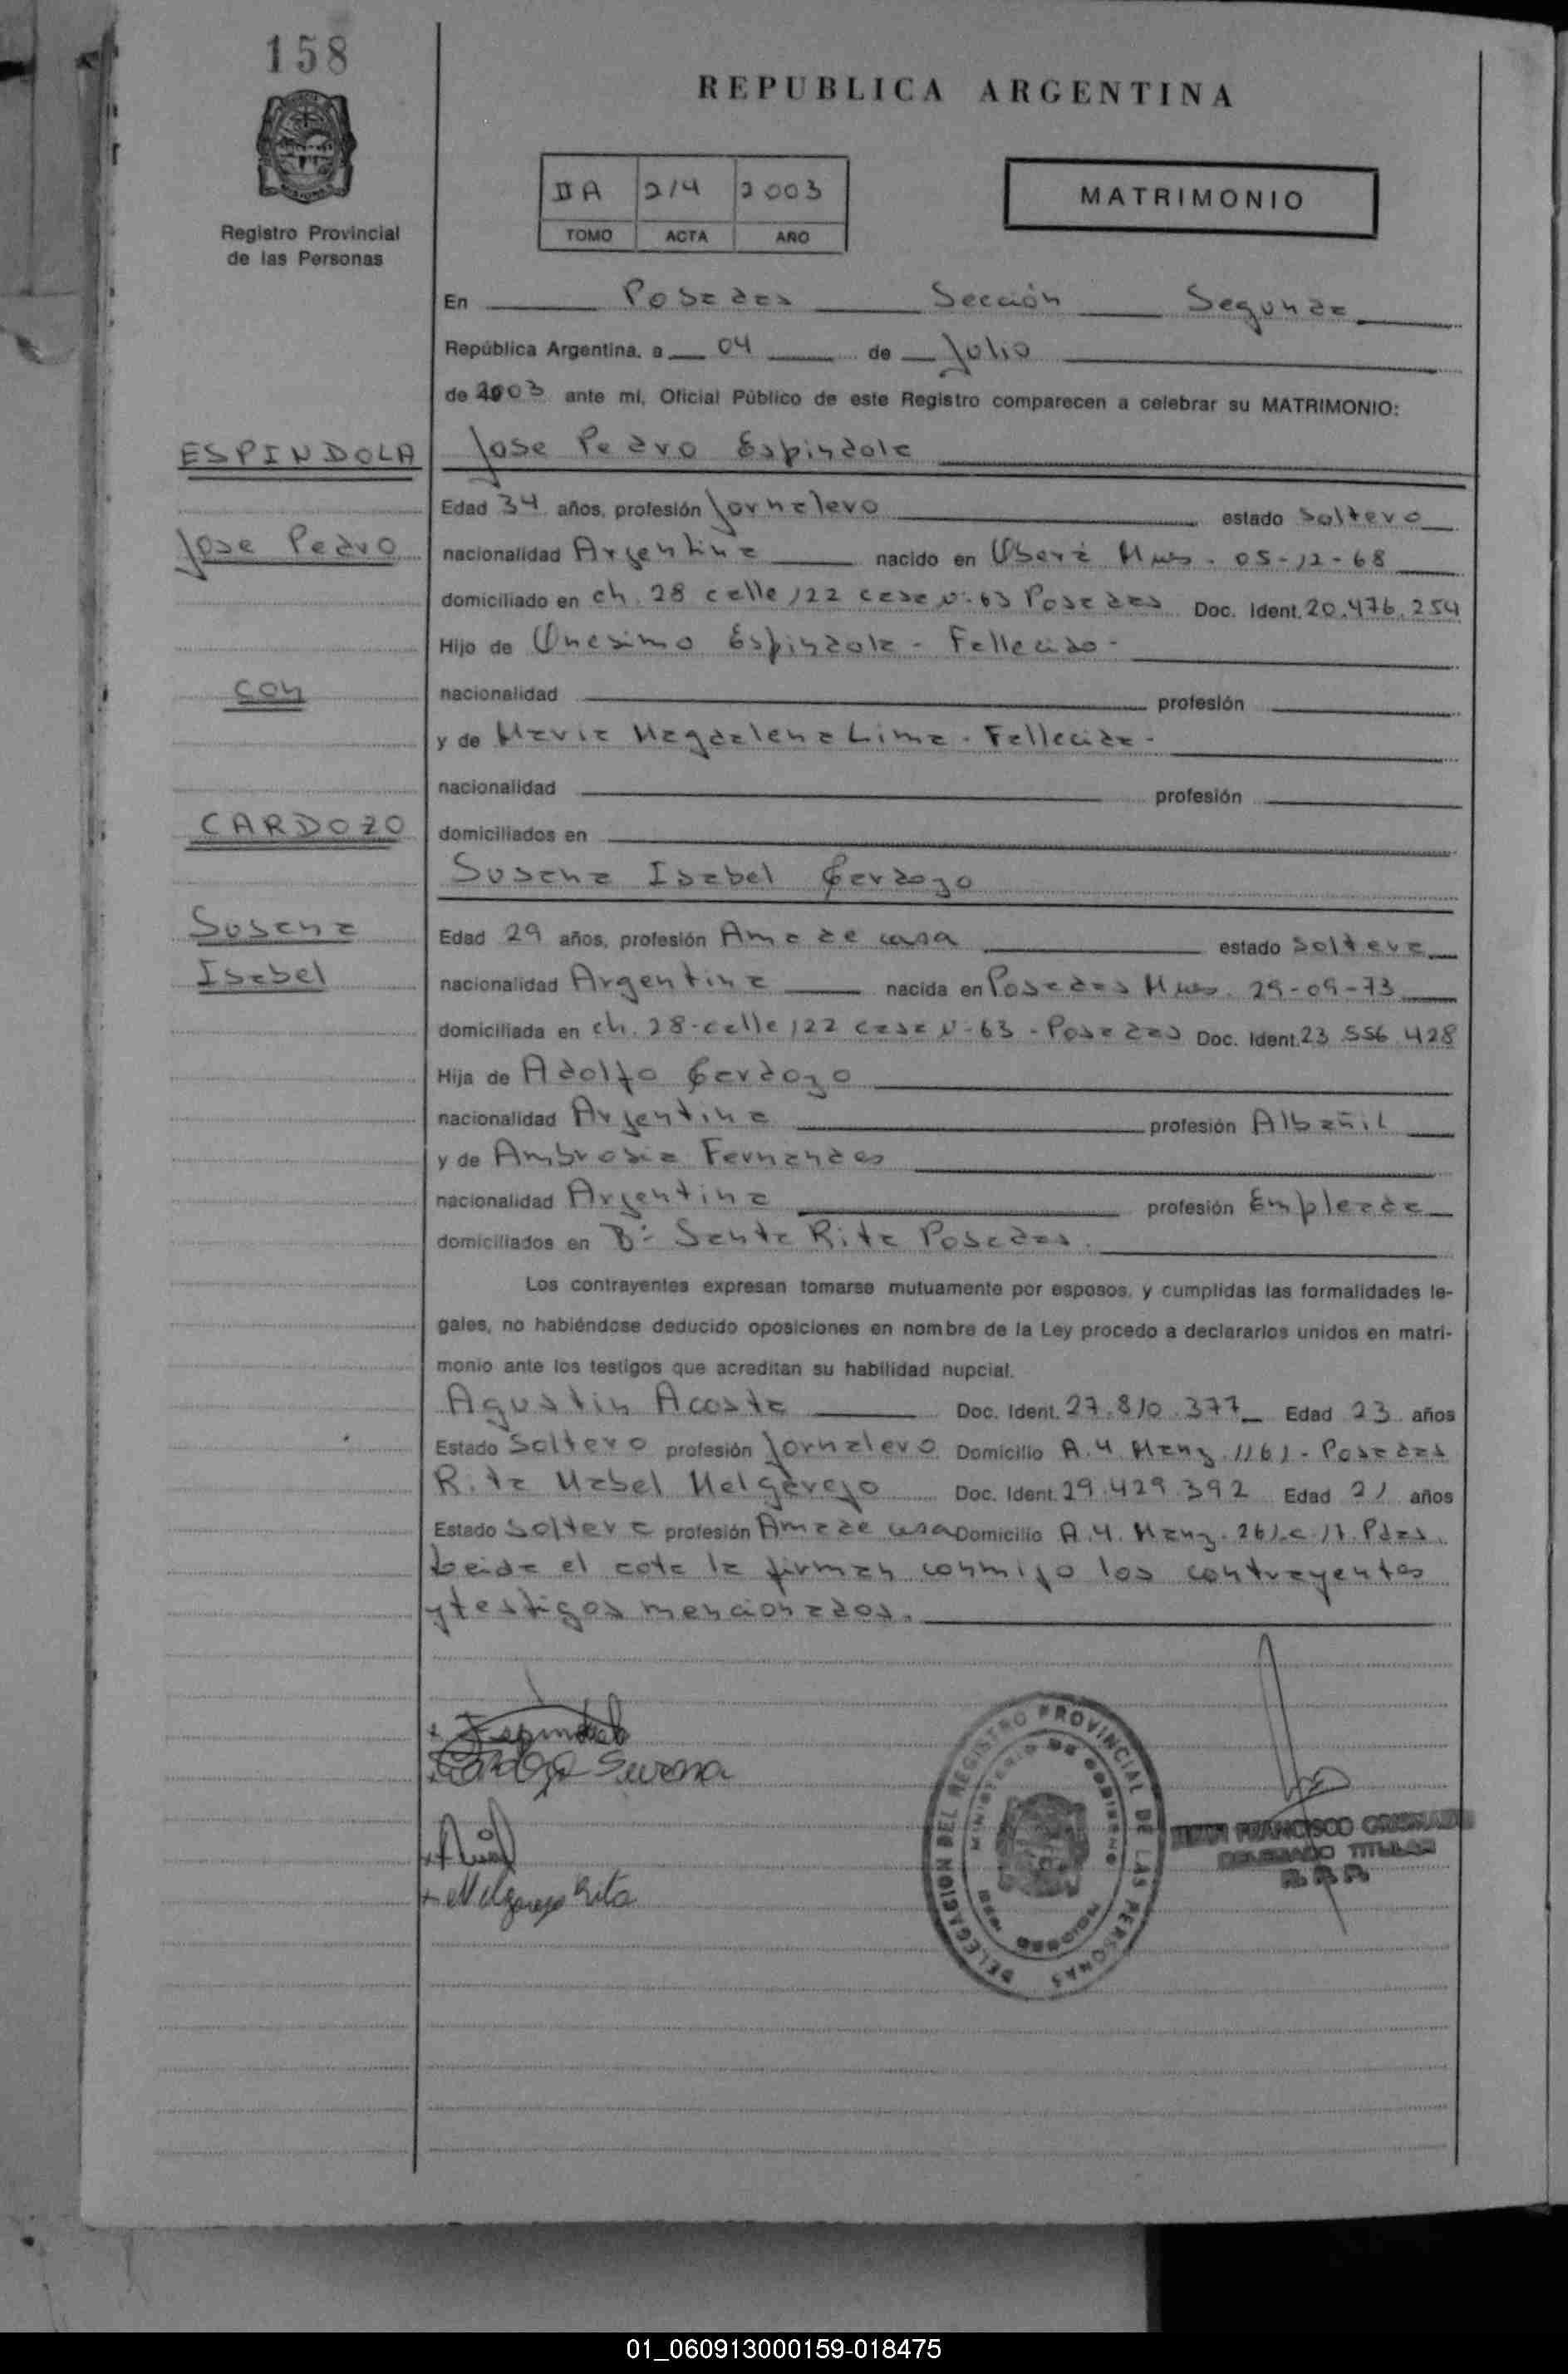 158
REPUBLICA ARGENTINA
Registro Provincial
de las Personas
II A 214 2003
TOMO ACTA AÑO
MATRIMONIO
En Posadas Sección Segunda
República Argentina, a 04 de Julio
de 2003 ante mí, Oficial Público de este Registro comparecen a celebrar su MATRIMONIO:
ESPINDOLA
Jose Pedro Espindola
Edad 34 años, profesión Jornalero estado Soltero
Jose Pedro
nacionalidad Argentina nacido en Oberá Mnes. 05-12-68
domiciliado en ch. 28 calle 122 casa N-63 Posadas Doc. Ident. 20.476.254
Hijo de Onesimo Espindola - Fallecido -
con
nacionalidad profesión
y de Maria Magdalena Lima - Fallecida -
nacionalidad profesión
CARDOZO
domiciliados en
Susana Isabel Cardozo
Susana
Isabel
Edad 29 años, profesión Ama de casa estado Soltera
nacionalidad Argentina nacida en Posadas Mnes. 29-09-73
domiciliada en ch. 28-calle 122 casa N-63 - Posadas Doc. Ident. 23.556.428
Hija de Adolfo Cardozo
nacionalidad Argentina profesión Albañil
y de Ambrosia Fernandes
nacionalidad Argentina profesión Empleada
domiciliados en B° Santa Rita Posadas.
Los contrayentes expresan tomarse mutuamente por esposos, y cumplidas las formalidades le-
gales, no habiéndose deducido oposiciones en nombre de la Ley procedo a declararlos unidos en matri-
monio ante los testigos que acreditan su habilidad nupcial.
Agustin Acosta Doc. Ident. 27.810.377 Edad 23 años
Estado Soltero profesión Jornalero Domicilio A.4 Manz. 1161 - Posadas
Rita Mabel Melgarejo Doc. Ident. 29.429.392 Edad 21 años
Estado Soltera profesión Ama de casa Domicilio A.4. Manz. 261.c.17. Pdas.
Leida el acta la firman conmigo los contrayentes
y testigos mencionados.
+ Espindola
Cardozo Susana
+ Melgarejo Rita
DELEGACION DEL REGISTRO PROVINCIAL DE LAS PERSONAS
MINISTERIO DE GOBIERNO
FRANCISCO
DELEGADO TITULAR
R.P.P.
01_060913000159-018475